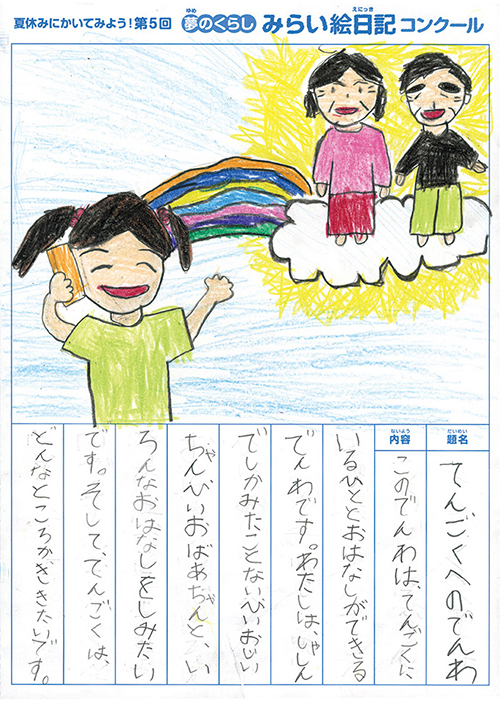 夏休みにかいてみよう!第5回 夢のくらし みらい絵日記 コンクール
ゆめ
えにっき
だいめい
題名
てんごくへのでんわ
ないよう
内容
このでんわは、てんごくに
いるひととおはなしができる
でんわです。わたしは、しゃしん
でしかみたことないひいおじい
ちゃんひいおばあちゃんと、い
ろんなおはなしをしみたい
です。そして、てんごくは、
どんなところかききたいです。